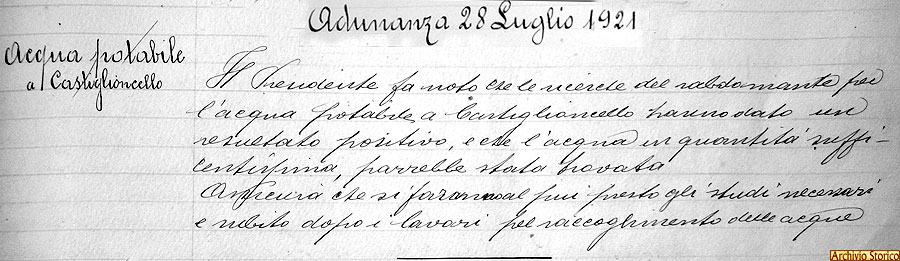 Adunanza 28 Luglio 1921
Acqua potabile
a Castiglioncello
Il Presidente fa noto che le ricerche del rabdomante per
l'acqua potabile a Castiglioncello hanno dato un
resultato positivo, e che l'acqua in quantità suffi-
centissima, parrebbe stata trovata
Assicura che si faranno al più presto gli studi necessari
e subito dopo i lavori pel raccoglimento delle acque
Archivio Storico